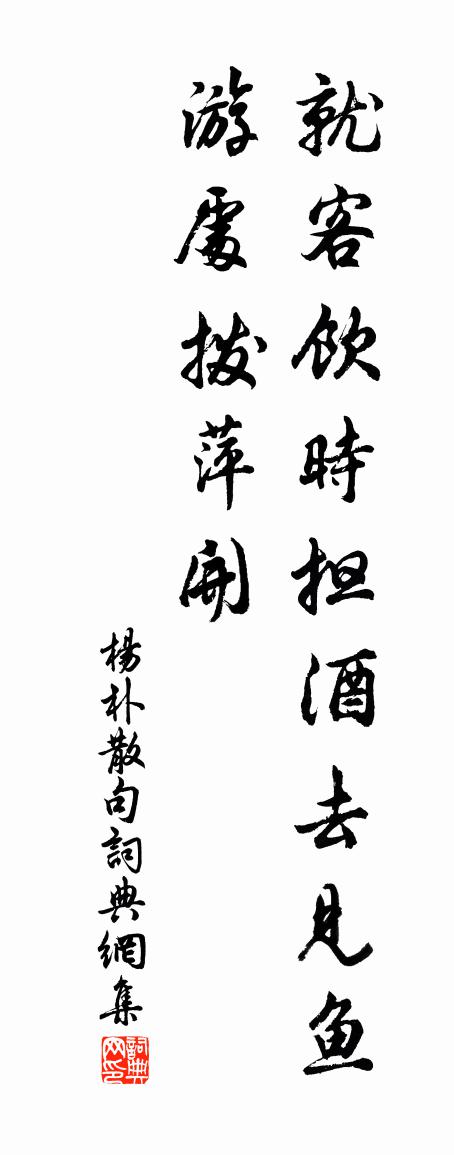 就客飲時担酒去見魚
游處拨萍開
楊朴散句詞典網集
詞典网印